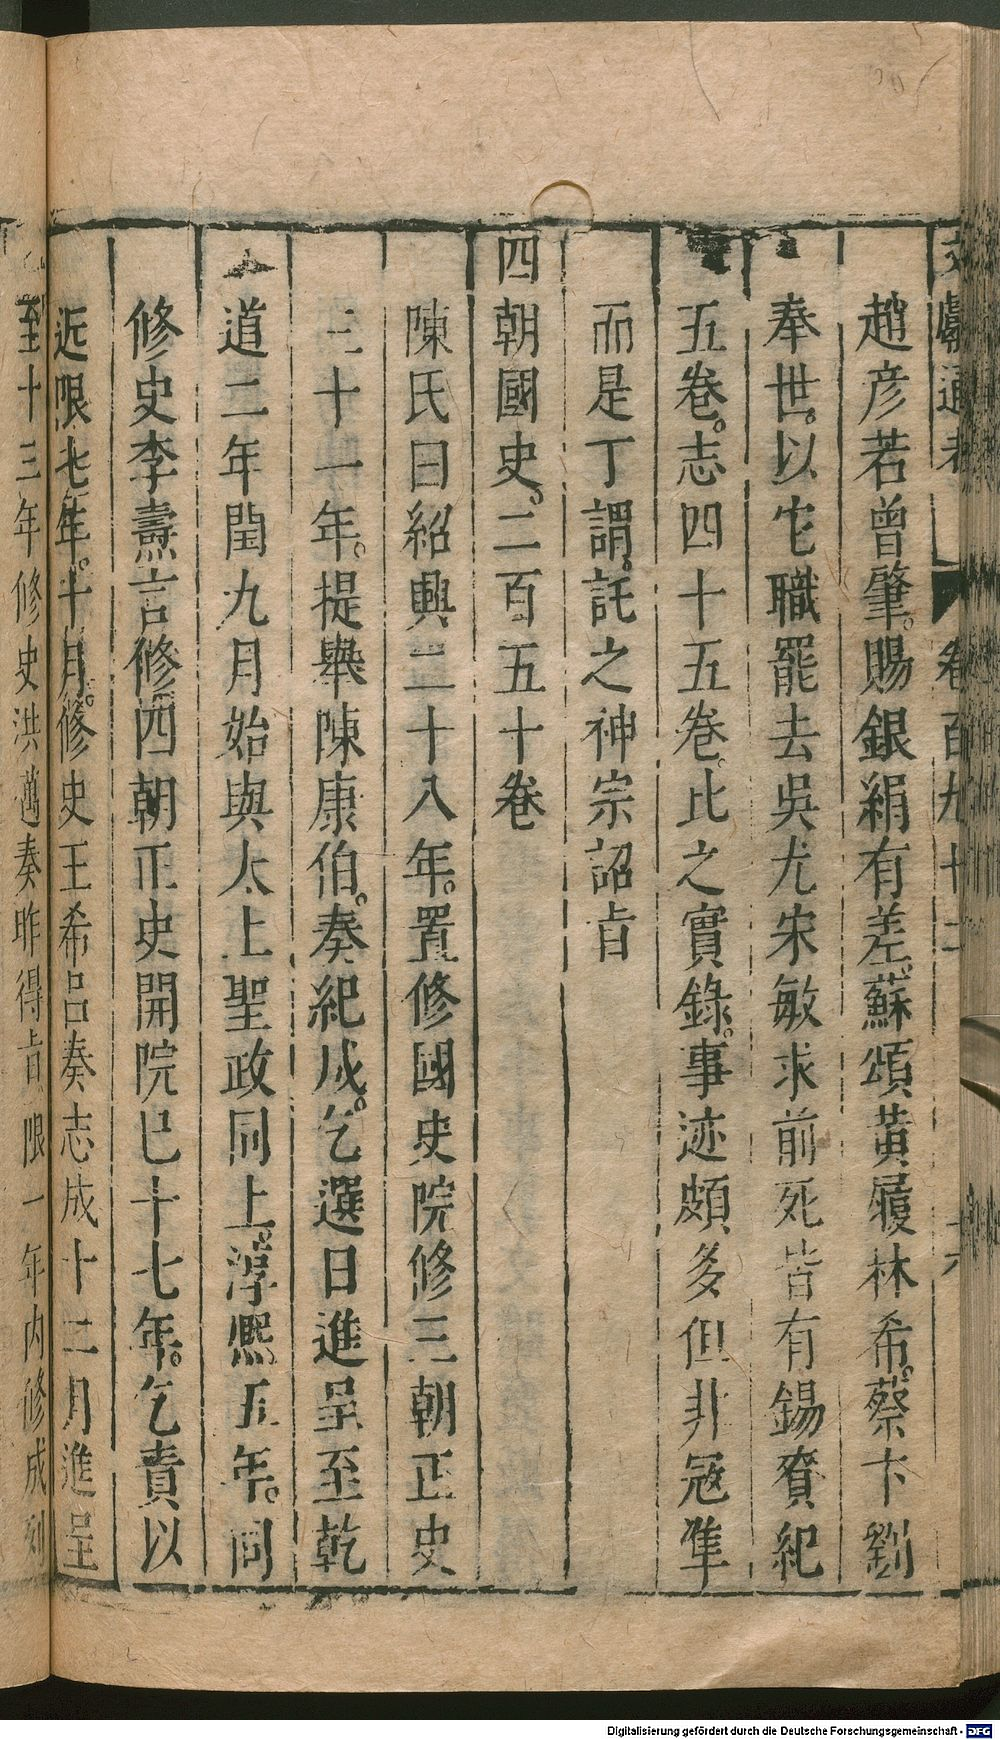 文獻通考 卷百九十二 六
趙彦若曾肇。賜銀絹有差。蘇頌黃履林希。蔡卞劉
奉世。以它職罷去吳尤宋敏求前死皆有錫賚紀
五卷。志四十五卷。比之實錄。事迹頗多但非寇準
而是丁謂。託之神宗詔㫖
四朝國史。二百五十卷
陳氏曰紹興二十八年。置修國史院修三朝正史
三十一年。提舉陳康伯。奏紀成。乞選日進呈至乾
道二年閏九月始與太上聖政同上。淳熙五年。同
修史李燾言修四朝正史開院已十七年。乞責以
近限七年。十月。修史王希呂奏志成十二月進呈
至十三年修史洪邁奏昨得㫖限一年内修成列
Digitalisierung gefördert durch die Deutsche Forschungsgemeinschaft - DFG